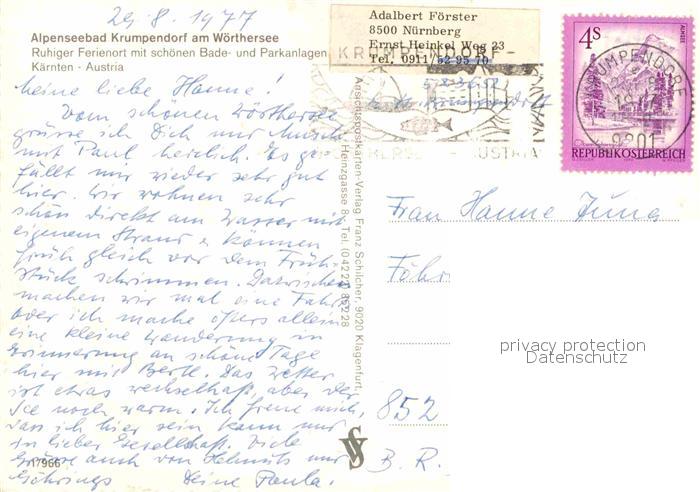 29.8.1977
Alpenseebad Krumpendorf am Wörthersee
Ruhiger Ferienort mit schönen Bade- und Parkanlagen
Kärnten - Austria
Meine liebe Hanne!
Vom schönen Wörthersee
grüsse ich Dich und
mit Paul herzlich. Es ge-
fällt mir wieder sehr gut
hier. Wir wohnen sehr
schön direkt am Wasser mit
eigenem Strand & können
früh gleich vor dem Früh-
stück schwimmen. Dazwischen
machen wir mal eine Fahrt
oder ich mache öfters allein
eine kleine Wanderung in
Erinnerung an schöne Tage
hier mit Berta. Das Wetter
ist etwas wechselhaft, aber der
See noch warm. Ich freue mich,
dass ich hier sein kann und
in lieber Gesellschaft. Viele
Grüsse auch von Helmuts und
Deine Paula.
17966
Ansichtspostkarten-Verlag Franz Schilcher, 9020 Klagenfurt,
Heinzgasse 8 Tel. (04222)
Adalbert Förster
8500 Nürnberg
Ernst Heinkel Weg 23
Tel. 0911/52 95 70
KRUMPENDORF -
AUSTRIA
KRUMPENDORF
9201
4S
ALMSEE
REPUBLIK ÖSTERREICH
Frau Hanne Jung
852
B. R.
privacy protection
Datenschutz